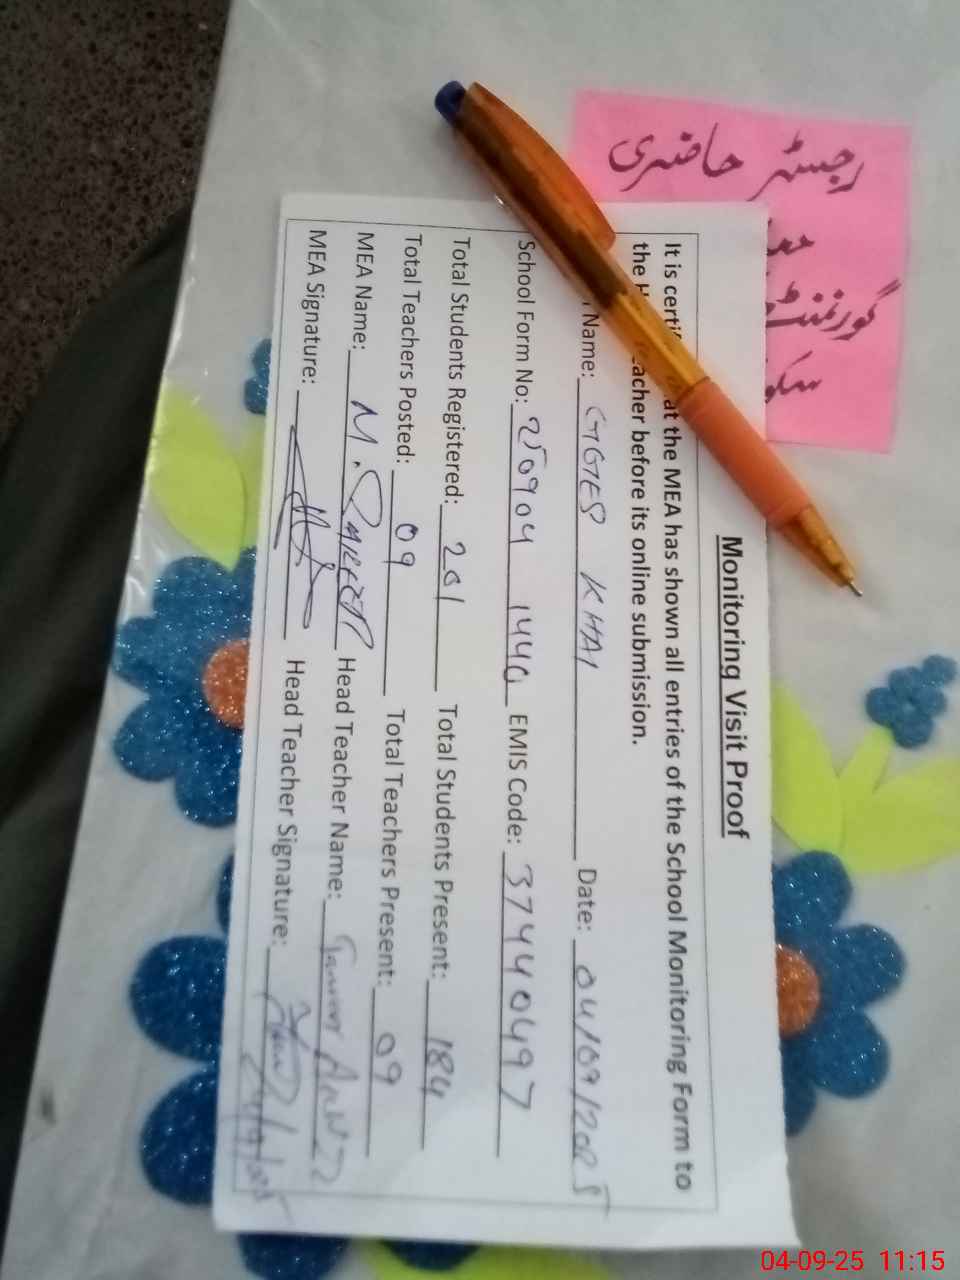 رجسٹر حاضری
گورنمنٹ
سکو
Monitoring Visit Proof
It is at the MEA has shown all entries of the School Monitoring Form to
the before its online submission.
Name: GGES KHAI Date: 04/09/2025
School Form No: 250904 1440 EMIS Code: 37440497
Total Students Registered: 201 Total Students Present: 184
Total Teachers Posted: 09 Total Teachers Present: 09
MEA Name: M. Head Teacher Name:
MEA Signature: Head Teacher Signature:
04-09-25 11:15